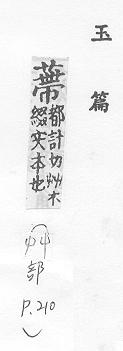 玉篇
蔕 都計切艸木
綴实本也
(艸部 P.210)